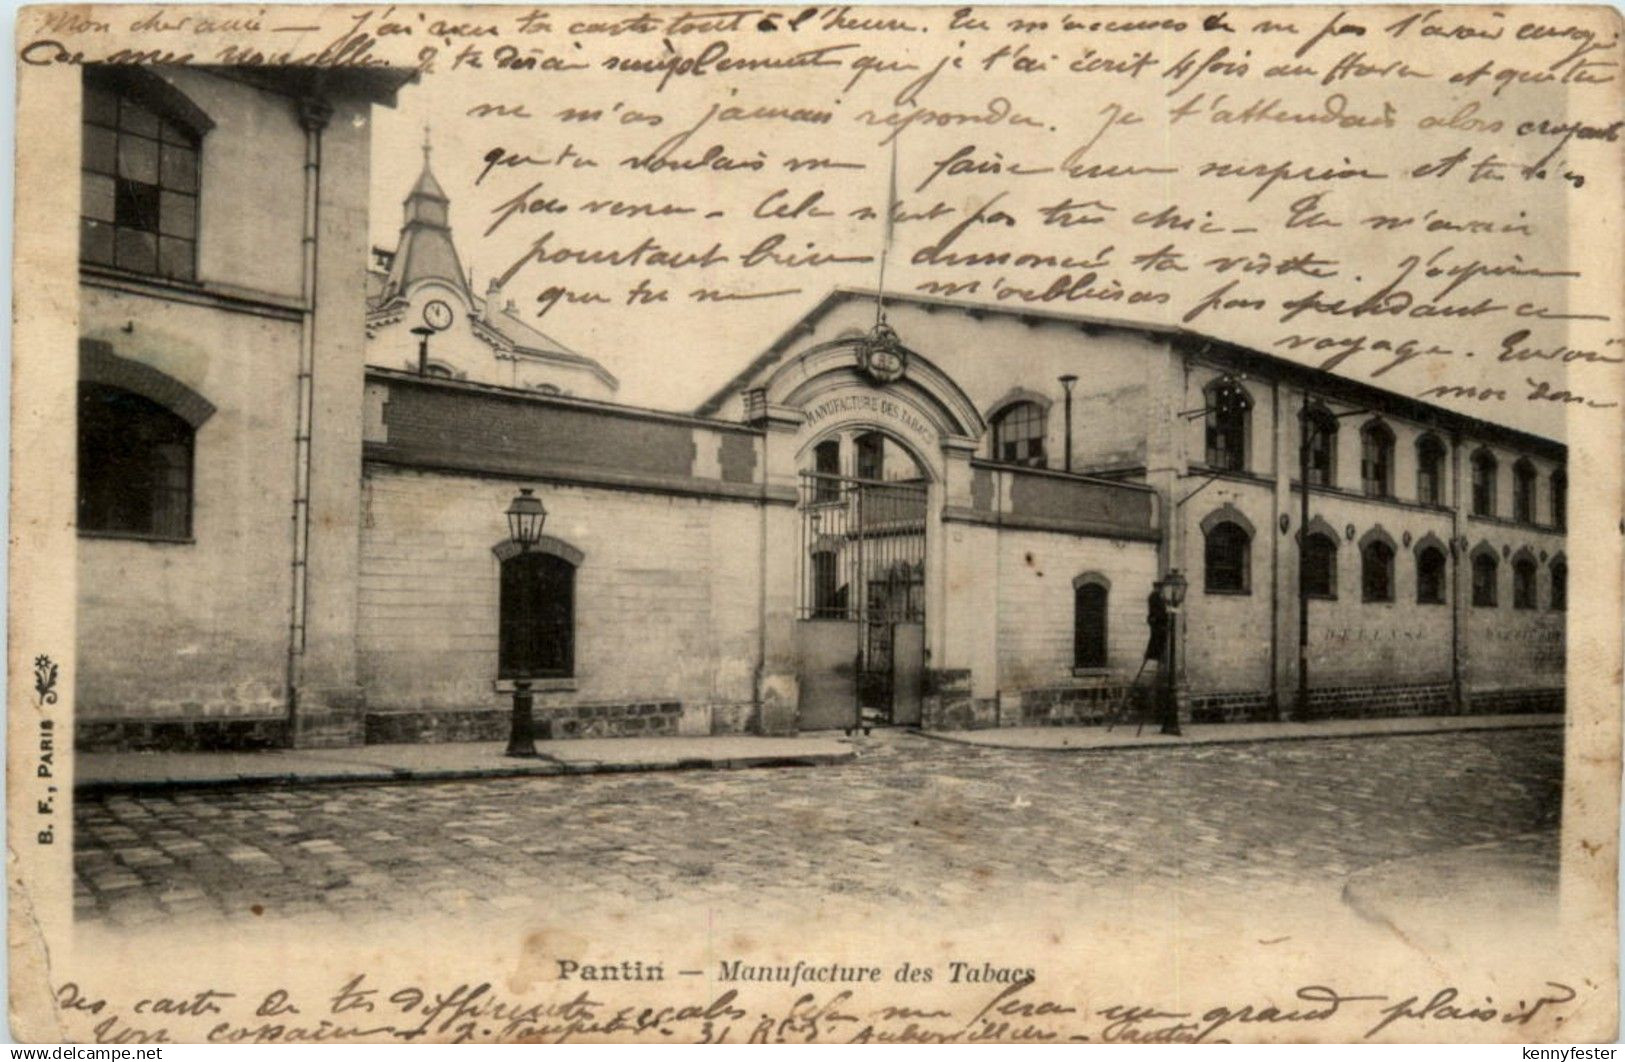 Mon cher ami — J'ai reçu ta carte tout à l'heure. Tu m'accuses de ne pas t'avoir envoyé
de mes nouvelles. Je te dirai simplement que je t'ai écrit 4 fois au Havre et que tu
ne m'as jamais répondu. Je t'attendais alors croyant
que tu voulais me faire une surprise et tu n'es
pas venu – Cela n'est pas très chic – Tu m'avais
pourtant bien annoncé ta visite. J'espère
que tu ne m'oublieras pas pendant ce
voyage. Envoie
moi donc
MANUFACTURE DES TABACS
DEFENSE
B. F., PARIS
Pantin — Manufacture des Tabacs
des cartes de tes différentes escales. Cela me fera un grand plaisir.
Ton copain 31 Rte d'Aubervilliers – Pantin –
kennyfester